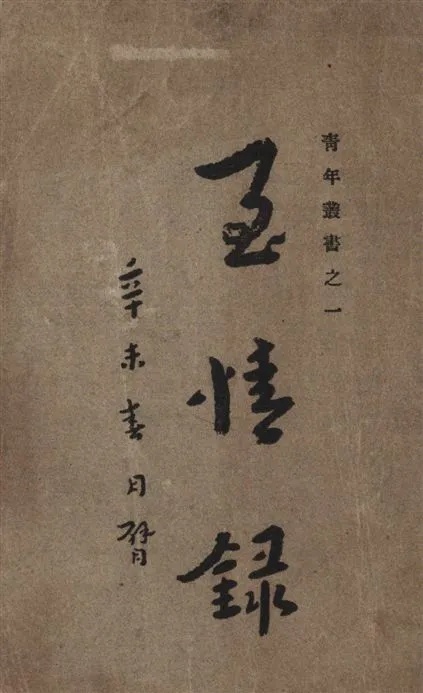 青年叢書之一
至情錄
辛未春月